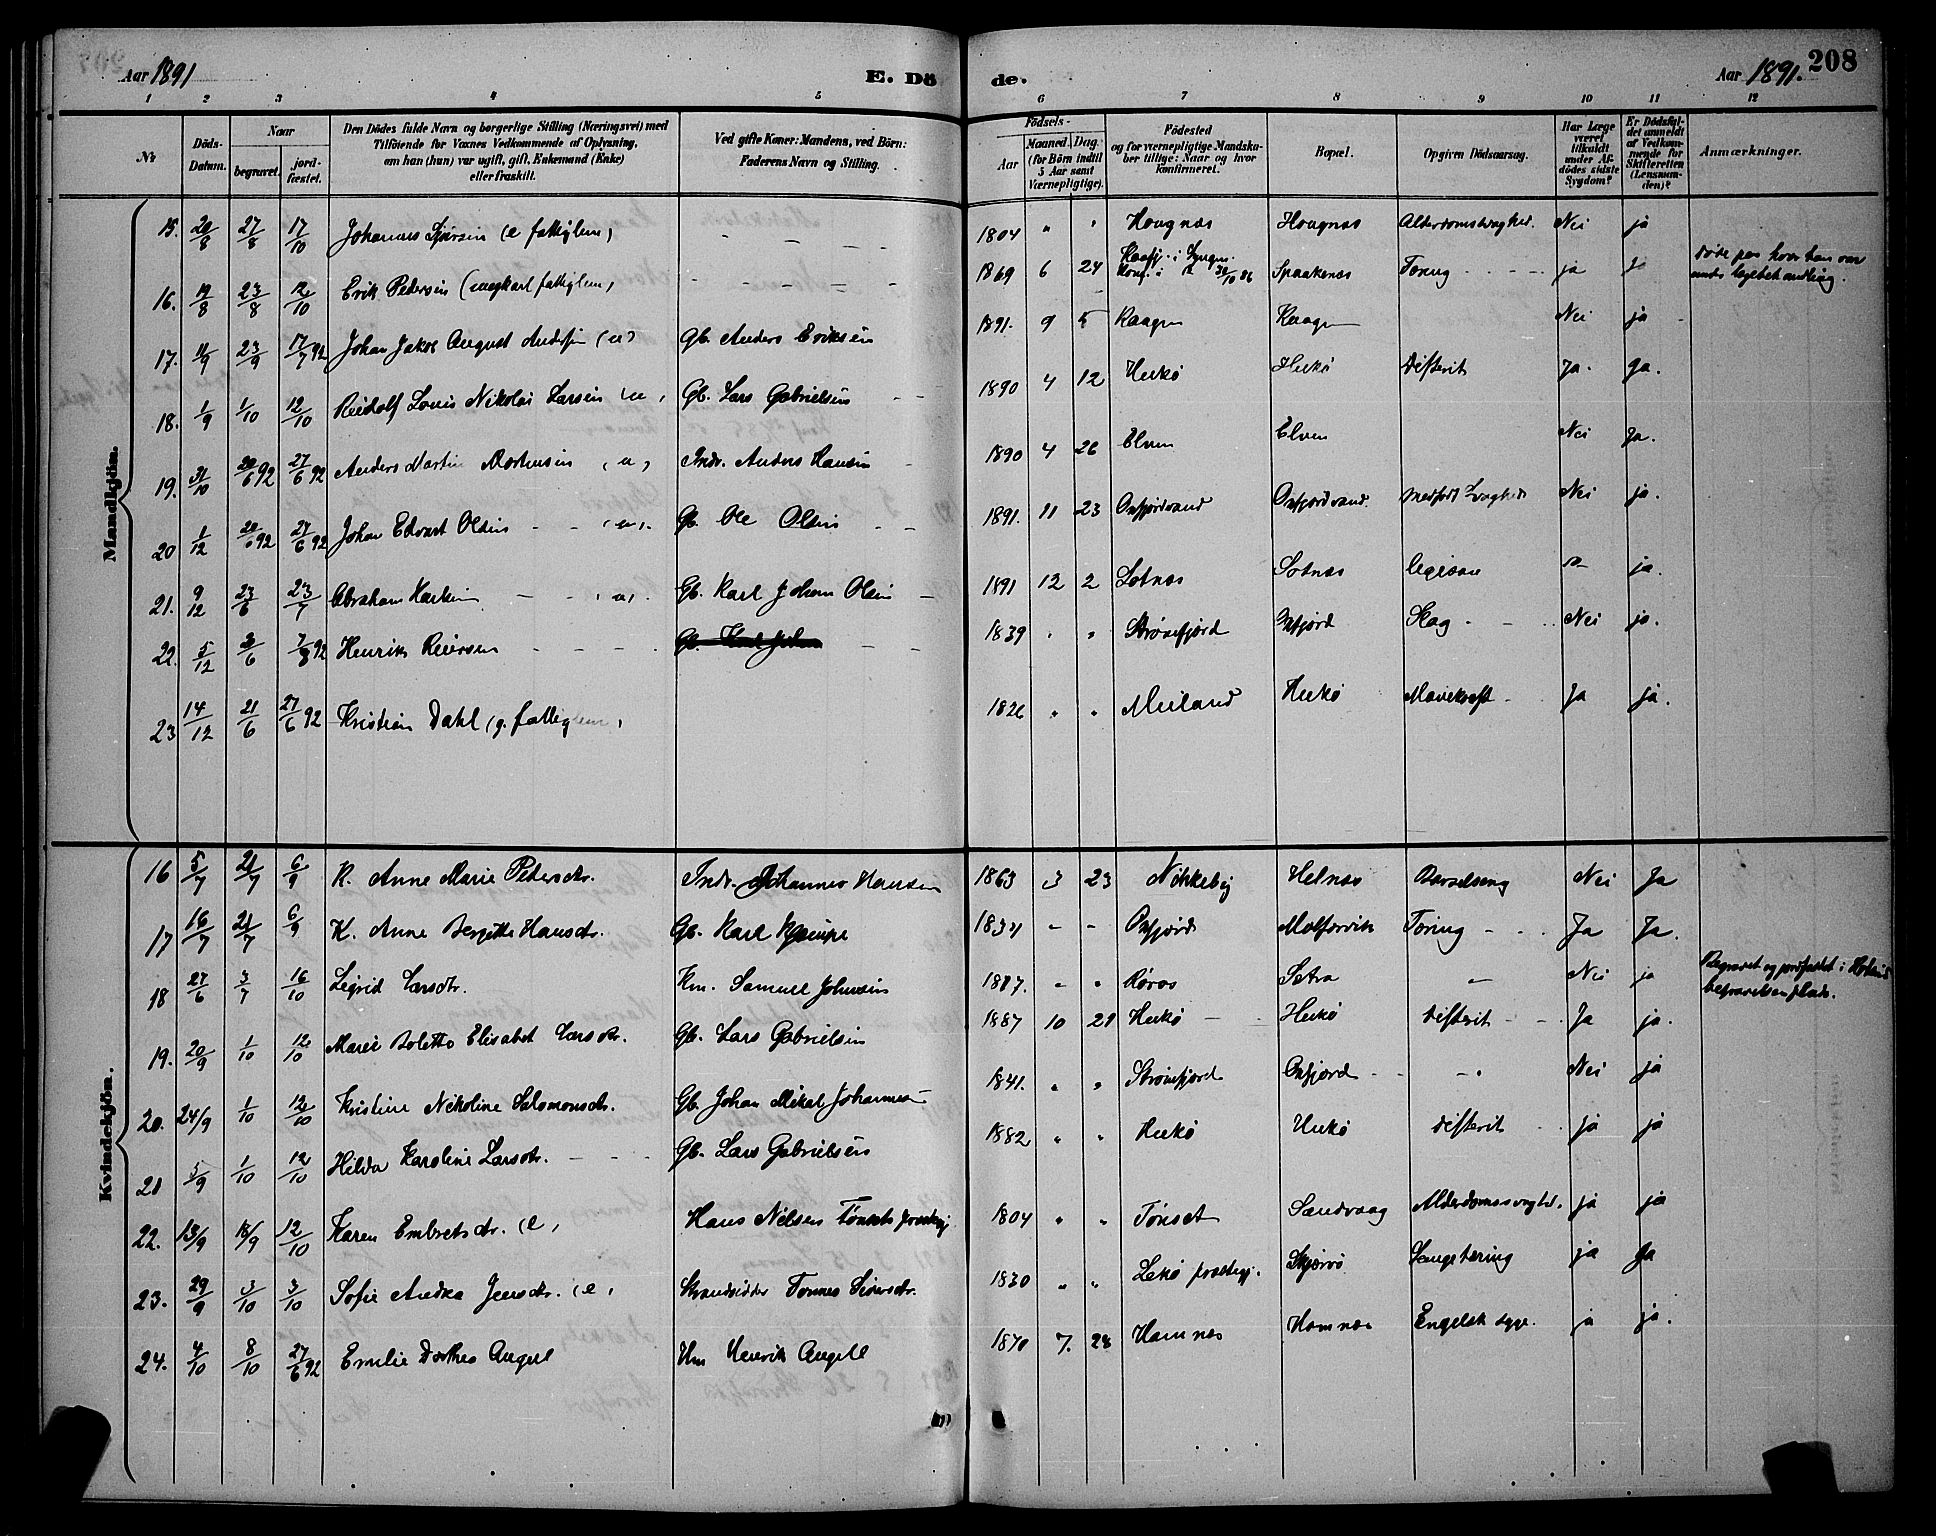 Aar 1891
E. Dö
de.
Aar 1891.
208
1 2 3 4 5 6 7 8 9 10 11 12
№
Döds-Datum.
Naar
begravet.
jord-fæstet.
Den Dödes fulde Navn og borgerlige Stilling (Næringsvei) med
Tilföiende for Voxnes Vedkommende af Oplysning,
om han (hun) var ugift, gift, Enkemand (Enke)
eller fraskilt.
Ved gifte Koner: Mandens, ved Börn:
Faderens Navn og Stilling.
Födsels-
Aar
Maaned Dag
(for Börn indtil
5 Aar samt
Værnepligtige).
Födested
og for værnepligtige Mandska-
ber tillige: Naar og hvor
konfirmeret.
Bopæl.
Opgiven Dödsaarsag.
Har Læge
været
tilkaldt
under Af-
dödes sidste
Sygdom?
Er Dödsfal-
det anmeldt
af Vedkom-
mende for
Skifteretten
(Lensman-
den)?
Anmærkninger.
Mandkjön.
15. 20/8 27/8 17/10 Johannes (e fattiglem) 1804 " " Hougnæs Hougnæs Alderdomssvaghed. Nei ja
16. 19/8 23/8 12/10 Erik Pedersen (ungkarl fattiglem) 1869 6 24 Konf. i 86 Spaakenæs Tæring ja
17. 11/9 23/9 17/7 92 Johan Jakob August Andersen (u) Gb. Anders Eriksen 1891. 9 5 Kaagen Kaagen Nei ja
18. 1/9 1/10 12/10 Reidolf Louis Nikolai Larsen (u) Gb. Lars Gabrielsen 1890 4 12 Hukø Hukø Difterit Ja. Ja.
19. 31/10 20/6 92 27/6 92 Anders Martin Mortensen (u) Indr. Anders Hansen 1890 4 26 Elven Elven Nei Ja.
20 1/12 20/6 92 27/6 92 Johan Edvart Olsen (u). Gb. Ole Olsen 1891. 11 23 Oxfjordvand Oxfjordvand. medfødt Svaghed Nei ja.
21. 9/12 23/6 23/7 Abraham Karlsen (u). Gb. Karl Johan Olsen 1891 12 2 Sotnæs Sotnæs ja.
22. 5/12 3/6 7/8 92 Henrik Reiersen 1839 " " Strømfjord Oxfjord Slag Nei ja.
23 14/12 21/6 27/6 92 Kristian Dahl (g. fattiglem) 1826 " " Meiland Hukø Mavekræft Ja ja.
Kvindekjön.
16 5/7 21/7 6/9 K. Anne Marie Pedersdtr. Indr. Johannes Hansen 1863 3 23 Nikkeby Helnæs Barselseng Nei Ja
17 16/7 21/7 6/9 K. Anne Bergitte Hansdtr. Gb. Karl 1834 - - Oxfjord Tæring Ja Ja.
18 27/6 3/7 16/10 Sigrid Larsdtr. Km. Samuel Johnsen 1817. " " Røros Sætra " Nei ja Begravet og jordfæstet i
19. 20/9 1/10 12/10 Marie Bolette Elisabet Larsdtr. Gb. Lars Gabrielsen 1887 10 21 Hukø Hukø Difterit Ja ja.
20. 24/9 1/10 12/10 Kristine Nikoline Salomonsdtr. Gb. Johan Mikal Johannesen 1841. " " Strømfjord Oxfjord " Nei ja
21 5/9 1/10 12/10 Hilda Karoline Larsdtr. Gb. Lars Gabrielsen 1882 " " Hukø Hukø Difterit ja ja
22. 13/9 18/9 12/10 Karen Embretsdtr. (e) Hans Nilsen Tønset 1804 " " Tønset Sandvaag Alderdomssvaghd. ja ja
23. 29/9 3/10 3/10 Sofie Andrea Jensdtr. (e) Strandsidder Tønnes 1830 " " Lekø præstegj. Skjærvø Lungetæring ja Ja
24. 4/10 8/10 27/6 92 Emilie Dorthea Angell Hm Henrik Angell 1870 7. 28 Hamnæs Hamnæs Engelsk Syge. ja ja.